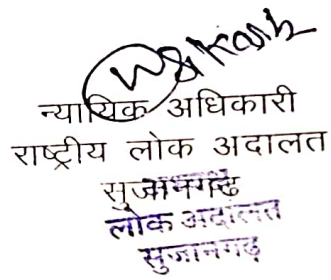 न्यायिक अधिकारी
राष्ट्रीय लोक अदालत
सुजानगढ
लोक अदालत
सुजानगढ़